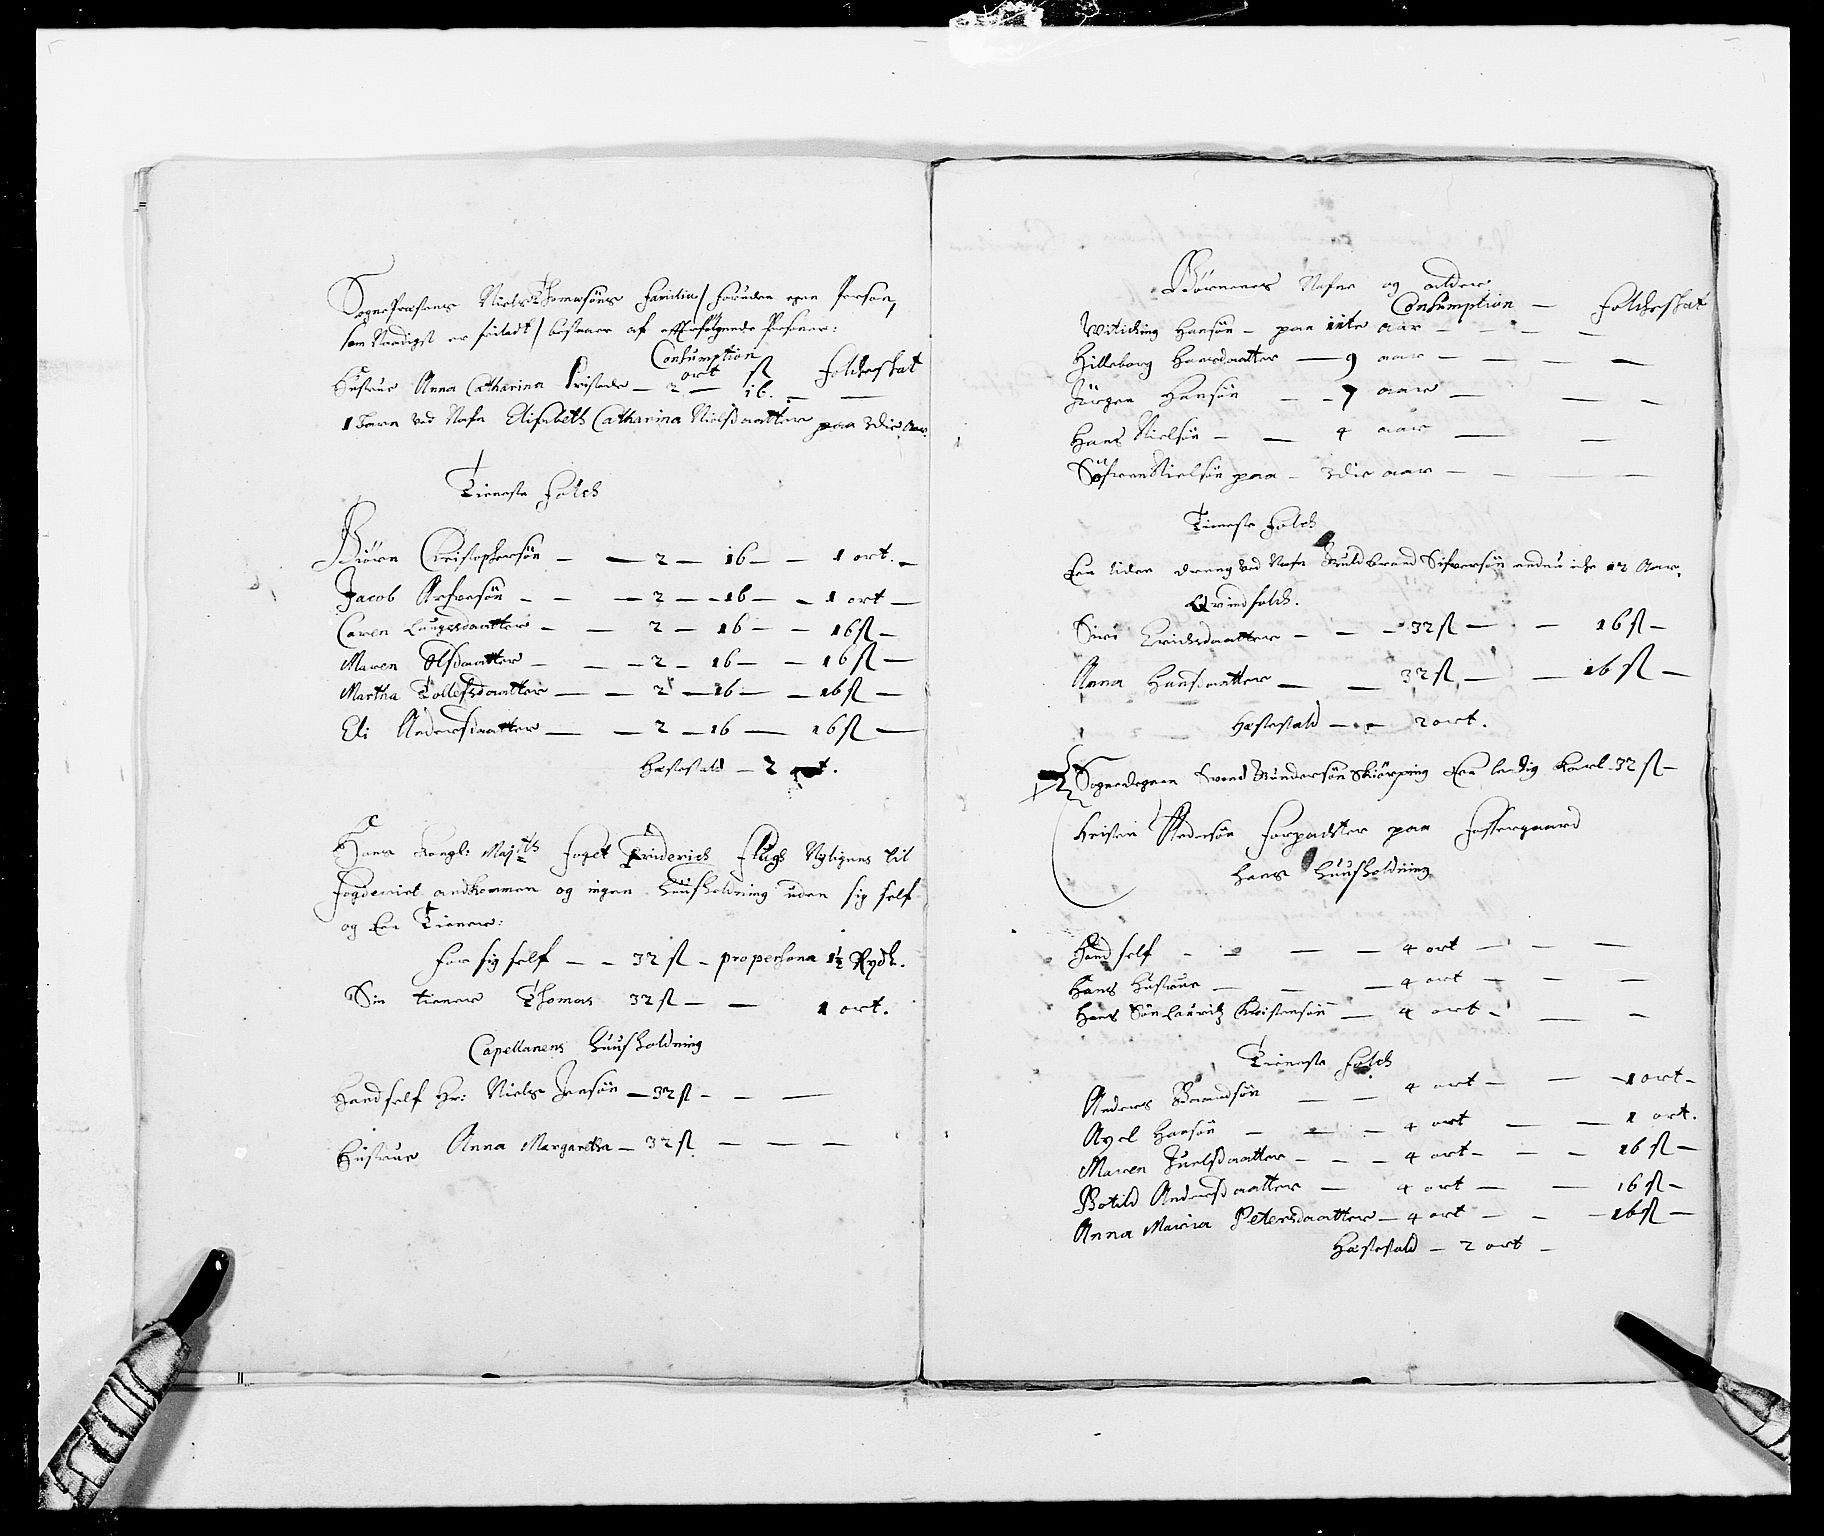 SognePræstens Niels Thomasøns Familia / foruden egen Person,
som Naadigst er forladt / bestaar af effterfølgende Personer:
Consumption folcheskat
ort sl
Hustrue Anna Catharina — 2 — 16. — —
1 Barn ved Nafn Elisabeth Catharina Nielsdaatter paa 3die Aar.
Tieneste folch
Biørn Christophersøn — — 2 — 16 — — 1 ort. —
Jacob Arfvesøn — — — 2 — 16 — — 1 ort —
Caren Laugesdaatter — — 2 — 16 — — 16 sl —
Maren Olsdaatter — — — 2 — 16 — — 16 sl —
Martha Tollefsdaatter — — 2 — 16 — — 16 sl —
Eli Andersdaatter — — 2 — 16 — 16 sl —
Hæstestald — 2 ort.
Hans Kongl: Maj:ts foget Friderich Flugh Nyligens til
fogderiet andkommen og ingen Huusholdning uden sig self
og Een Tienere:
for sig self — — 32 sl — pro persona 1½ Rydlr.
Sin tienere Thomas 32 sl — — 1 ort.
Capellanens Huusholdning
Hand self Hr: Niels Jensøn — 32 sl — — —
Hustrue Anna Margaretha — 32 sl — — —
Børnenes Nafne og alder
Consumption — folcheskat
Witiching Hansøn — paa 11te aar — — — —
Hilleborg Hansdaatter — 9 aar — — — —
Jørgen Hansøn — — 7 aar — — —
Hans Nielsøn — — 4 aar — —
Søfren Nielsøn paa — 3die aar — — — —
Tieneste folch
Een liden dreng ved Nafn Guldbrand Sifversøn endnu iche 12 Aar.
Qvindfolch.
Siri Erichsdaatter — — — 32 sl — — 16 sl —
Anna Hansdaatter — — 32 sl — — 16 sl —
Hæstestald — — 2 ort.
Sognedegnen Svend Gundersøn Skiørping Een ledig Karl 32 sl —
Kristen Pedersøn forpagter paa fossergaard
Hans Huusholdning
Hand self — — — — 4 ort — — —
Hans Hustrue — — — 4 ort — — —
Hans Søn Lauritz Christensøn — 4 ort — — —
Tieneste folch
Anders — — 4 ort — — 1 ort —
Axel Hansøn — — — 4 ort — — 1 ort.
Maren Juelsdaatter — — — 4 ort — — — 16 sl —
Botild Andersdaatter — 4 ort — — 16 sl —
Anna Maria Petersdaatter — 4 ort — — — 16 sl —
Hæstestald — 2 ort —